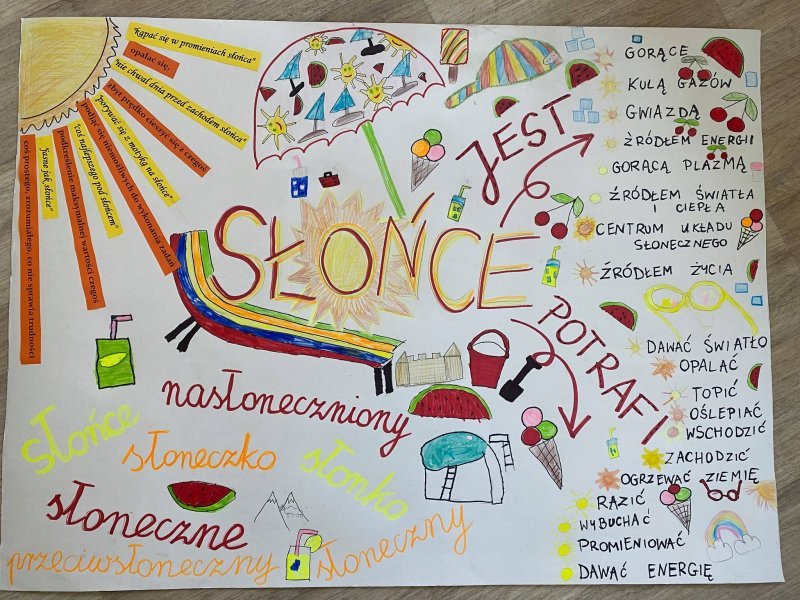 "kąpać się w promieniach słońca"
opalać się,
"nie chwal dnia przed zachodem słońca"
zbyt prędko cieszyć się z czegoś
"porywać się z motyką na słońce"
podjąć się niemożliwych do wykonania zadań
"coś najlepszego pod słońcem"
podkreślenie maksymalnej wartości czegoś
"Jasne jak słońce"
coś prostego, zrozumiałego, co nie sprawia trudności
SŁOŃCE
JEST
GORĄCE
KULĄ GAZÓW
GWIAZDĄ
ŹRÓDŁEM ENERGII
GORĄCĄ PLAZMĄ
ŹRÓDŁEM ŚWIATŁA
I CIEPŁA
CENTRUM UKŁADU
SŁONECZNEGO
ŹRÓDŁEM ŻYCIA
POTRAFI
DAWAĆ ŚWIATŁO
OPALAĆ
TOPIĆ
OŚLEPIAĆ
WSCHODZIĆ
ZACHODZIĆ
OGRZEWAĆ ZIEMIĘ
RAZIĆ
WYBUCHAĆ
PROMIENIOWAĆ
DAWAĆ ENERGIĘ
nasłoneczniony
słońce
słoneczko
słonko
słoneczne
przeciwsłoneczny
słoneczny